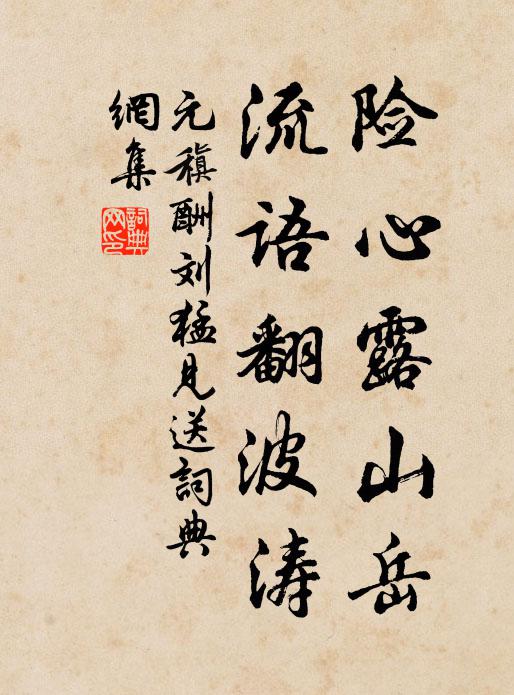 险心露山岳
流语翻波涛
元稹酬刘猛见送詞典
網集
詞典網印